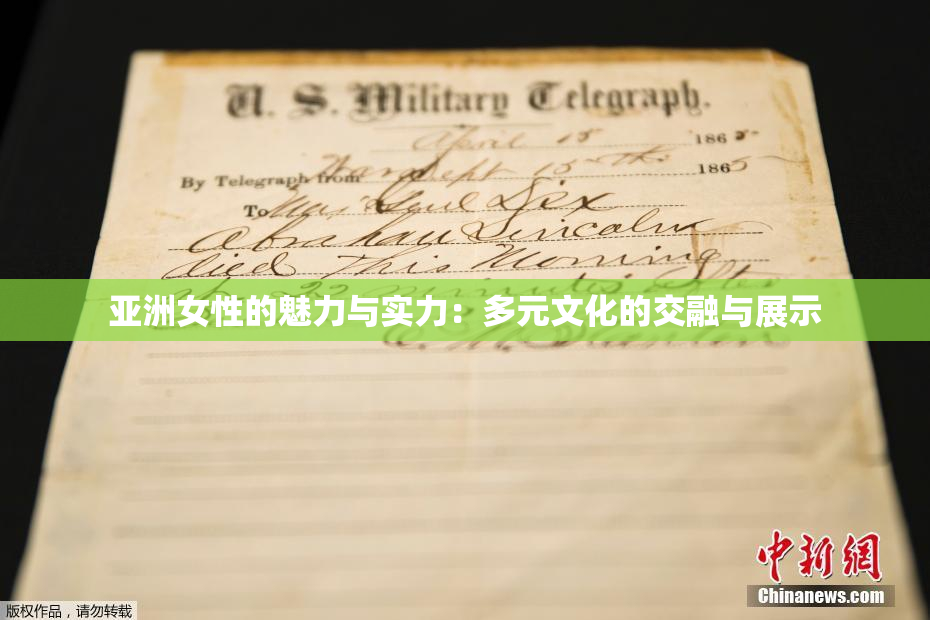 U. S. Military Telegraph.
April 15 1865
By Telegraph from War Dept 15th 1865
To Maj Genl Dix
Abraham Lincoln
died This Morning
22 minutes after
亚洲女性的魅力与实力：多元文化的交融与展示
中新网
Chinanews.com
版权作品，请勿转载